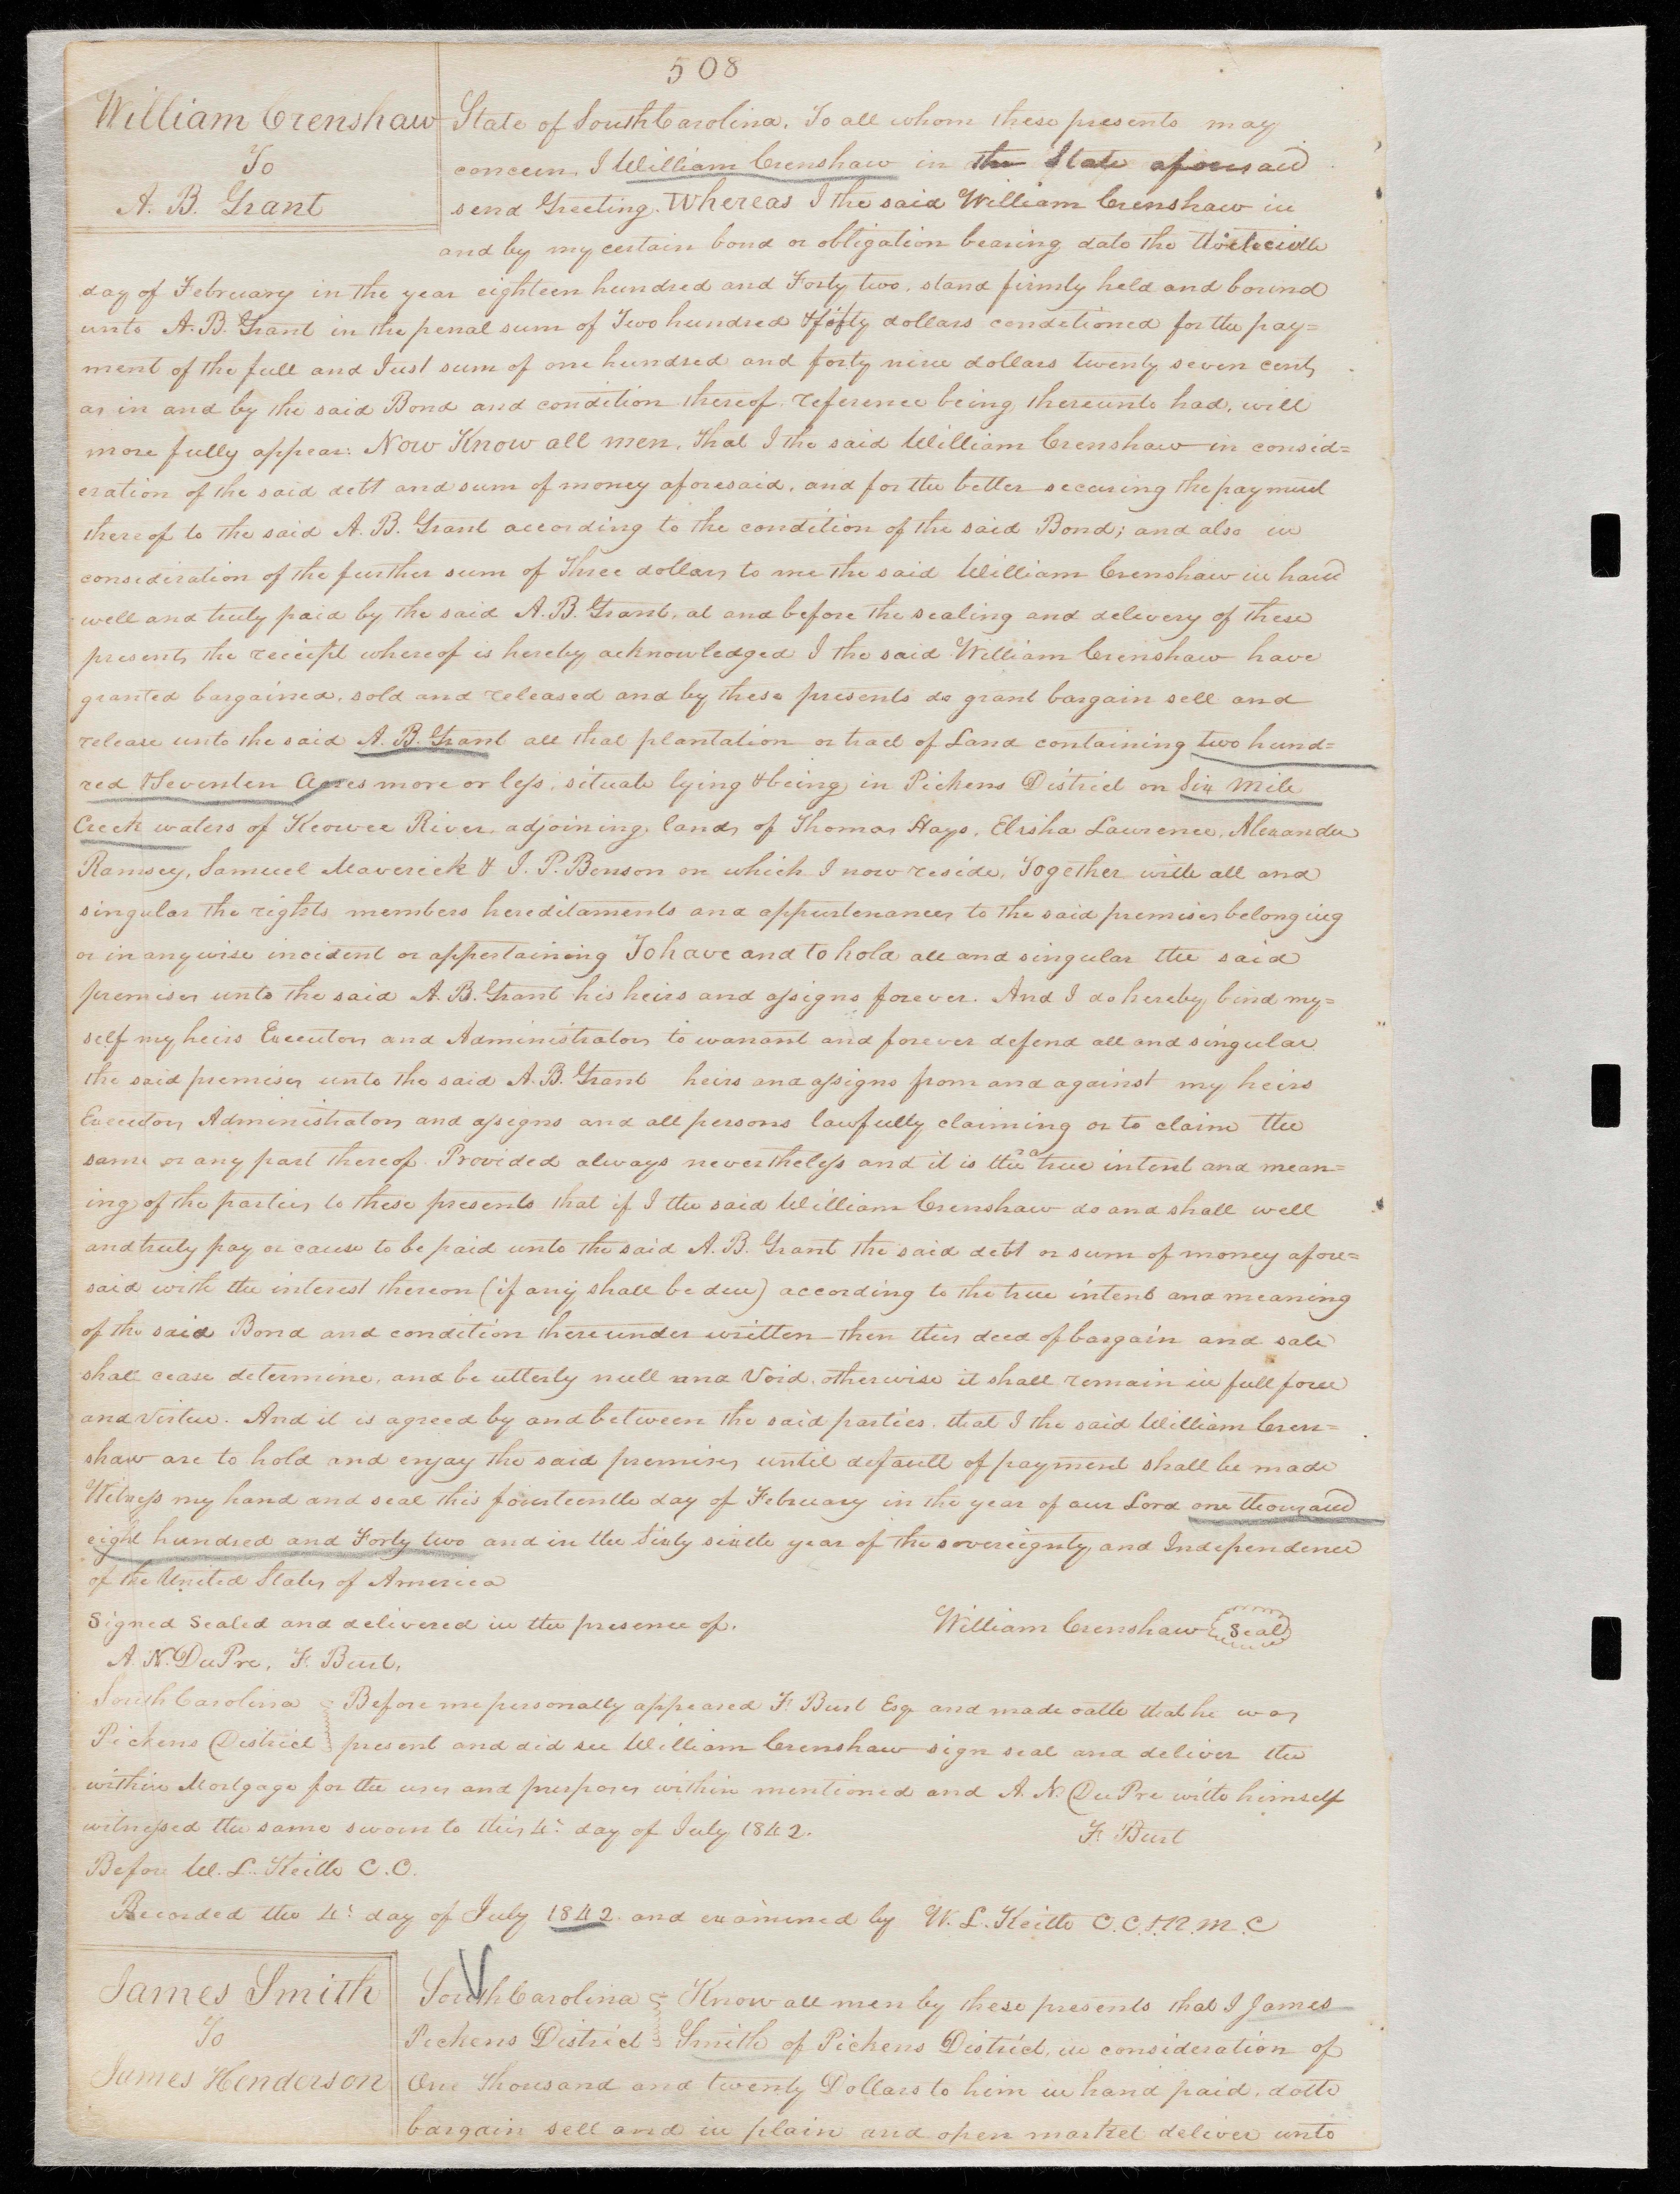 508
William Crenshaw
To
A. B. Grant
State of South Carolina. To all whom these presents may
concern, I William Crenshaw in the State aforesaid
send Greeting. Whereas I the said William Crenshaw in
and by my certain bond or obligation bearing date the
day of February in the year eighteen hundred and Forty two, stand firmly held and bound
unto A. B. Grant in the penal sum of Two hundred & fifty dollars conditioned for the pay=
ment of the full and Just sum of one hundred and forty nine dollars twenty seven cents,
as in and by the said Bond and condition thereof reference being thereunto had, will
more fully appear: Now Know all men, that I the said William Crenshaw in consid=
eration of the said debt and sum of money aforesaid, and for the better securing the payment
thereof to the said A. B. Grant according to the condition of the said Bond; and also in
consideration of the further sum of Three dollars to me the said William Crenshaw in hand
well and truly paid by the said A. B. Grant, at and before the sealing and delevery of these
presents, the receipt whereof is hereby acknowledged I the said William Crenshaw have
granted bargained, sold and released and by these presents do grant bargain sell and
release unto the said A. B. Grant all that plantation or tract of Land containing two hund=
red & Seventen Acres more or less, situate lying & being in Pickens District on Six Mile
Creek waters of Keowee River, adjoining lands of Thomas Hays, Elisha Lawrence, Alexander
Ramsey, Samuel Maverick & J. P. Benson on which I now reside, Together with all and
singular the rights members hereditaments and appurtenances to the said premises belonging
or in anywise incident or appertaining To have and to hold all and singular the said
premises unto the said A. B. Grant his heirs and assigns forever. And I do hereby bind my=
self my heirs Executors and Administrators to warrant and forever defend all and singular
the said premises unto the said A. B. Grant heirs and assigns from and against my heirs
Executors Administrators and assigns and all persons lawfully claiming or to claim the
same or any part thereof. Provided always nevertheless and it is the true intent and mean=
ing of the parties to these presents that if I the said William Crenshaw do and shall well
and truly pay or cause to be paid unto the said A. B. Grant the said debt or sum of money afore=
said with the interest thereon (if any shall be due) according to the true intent and meaning
of the said Bond and condition thereunder written then this deed of bargain and sale
shall cease determine, and be utterly null and Void, otherwise it shall remain in full force
and virtue. And it is agreed by and between the said parties, that I the said William Cren=
shaw are to hold and enjoy the said premises until default of payment shall be made
Witness my hand and seal this fourteenth day of February in the year of our Lord one thousand
eight hundred and Forty two and in the Sixty sixth year of the sovereignty and Independence
of the United States of America
Signed Sealed and delivered in the presence of.
William Crenshaw Seal
A. N. DuPre, F. Burt,
South Carolina Before me personally appeared F. Burt Esq. and made oath that he was
Pickens District present and did see William Crenshaw sign seal and deliver the
within Mortgage for the uses and purposes within mentioned and A. N. DuPre with himself
witnessed the same sworn to this 4th day of July 1842.
F. Burt
Before W. L. Keith C.C.
Recorded the 4th day of July 1842 and examined by W. L. Keith C.C. & R.M.C
James Smith
To
James Henderson
South Carolina Know all men by these presents that I James
Pickens District Smith of Pickens District, in consideration of
One Thousand and twenty Dollars to him in hand paid, doth
bargain sell and in plain and open market deliver unto